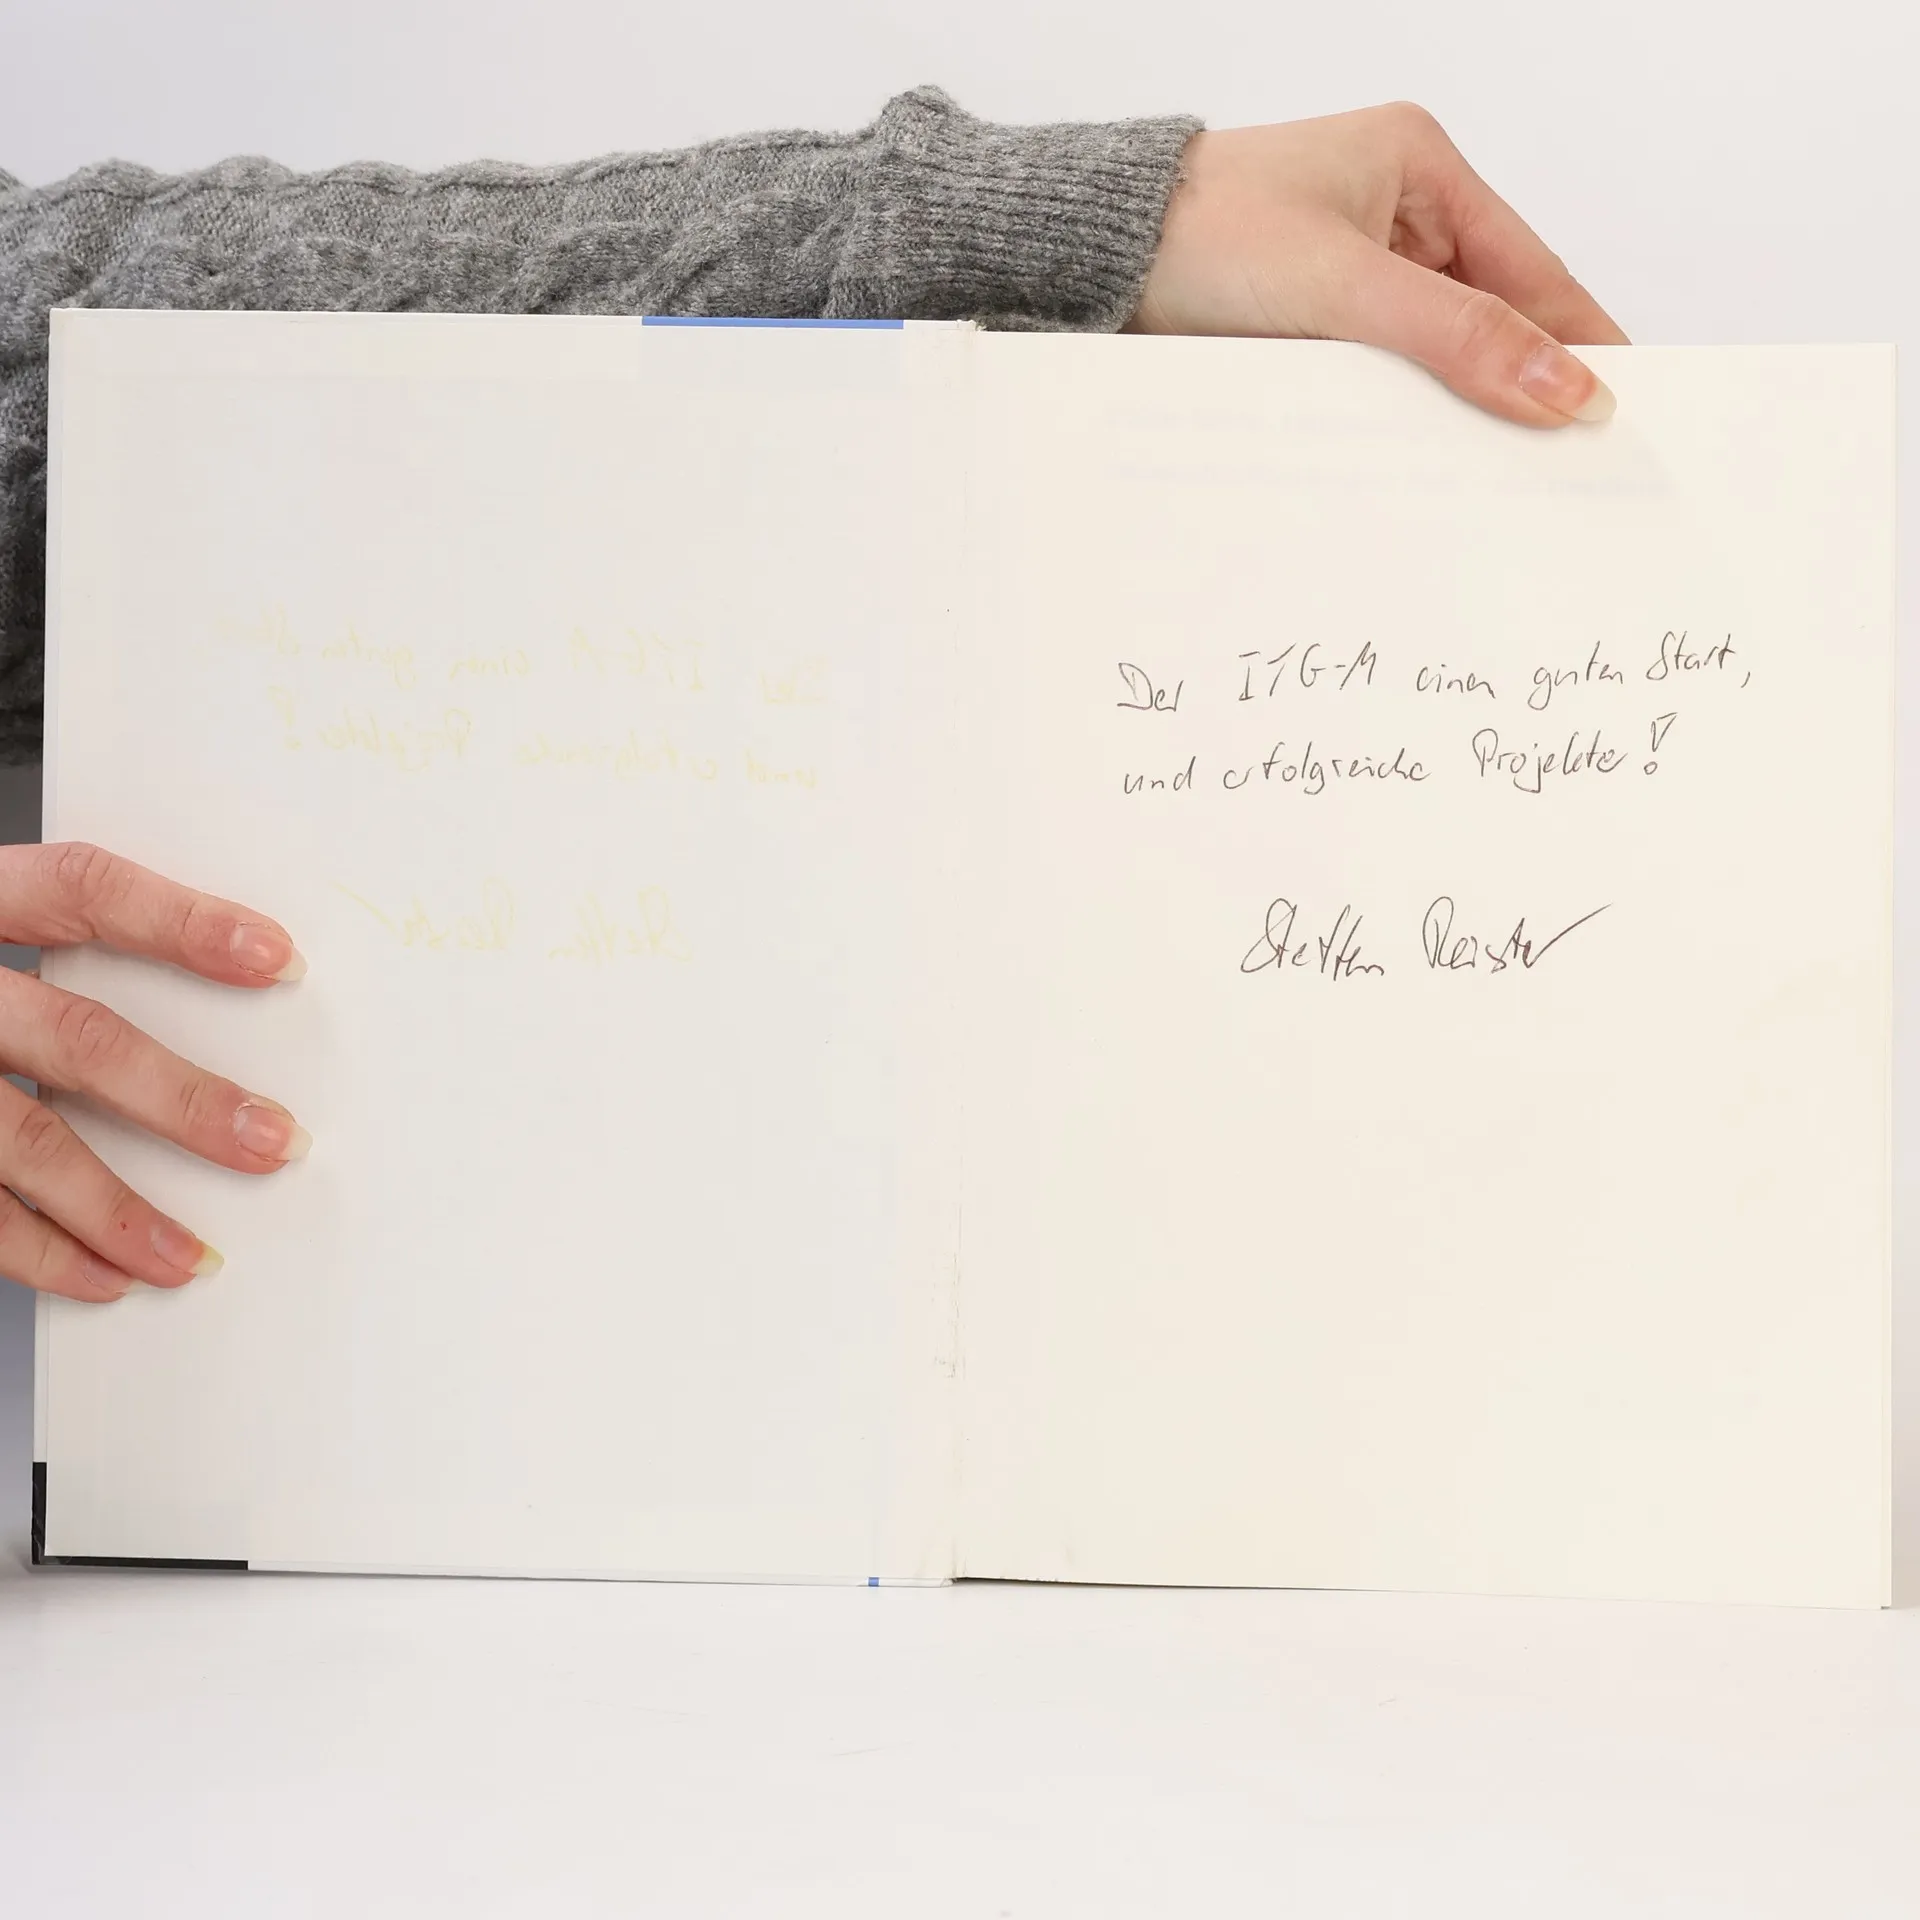 Der ITG-M einen guten Start,
und erfolgreiche Projekte!
Steffen Reister